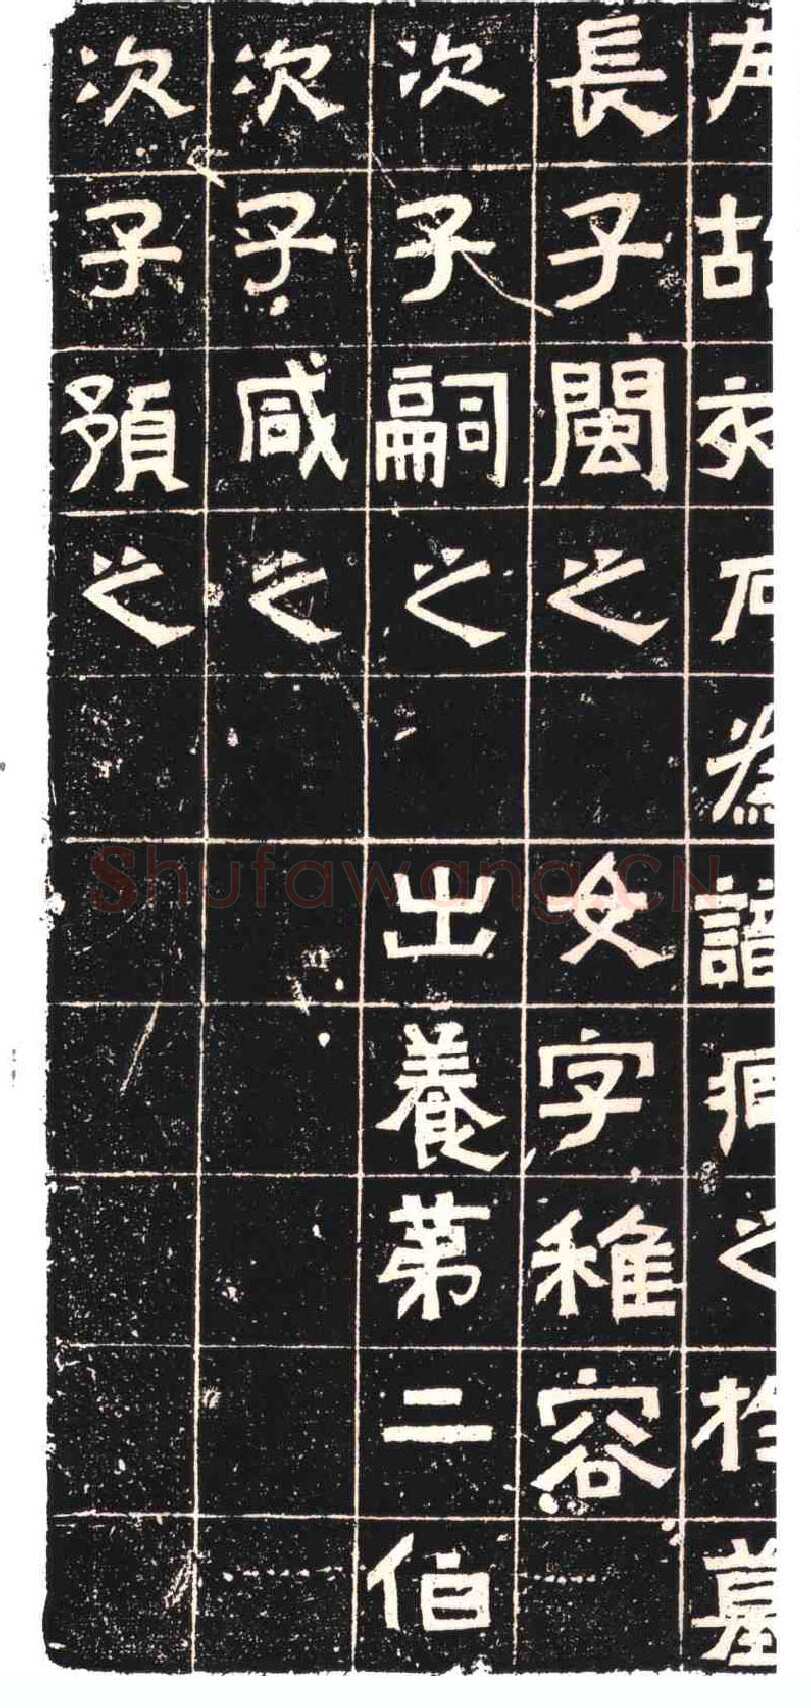 故刻石為識臧之於墓
長子閩之 女字稚容
次子嗣之 出養第二伯
次子咸之
次子預之
Shufawang.CN